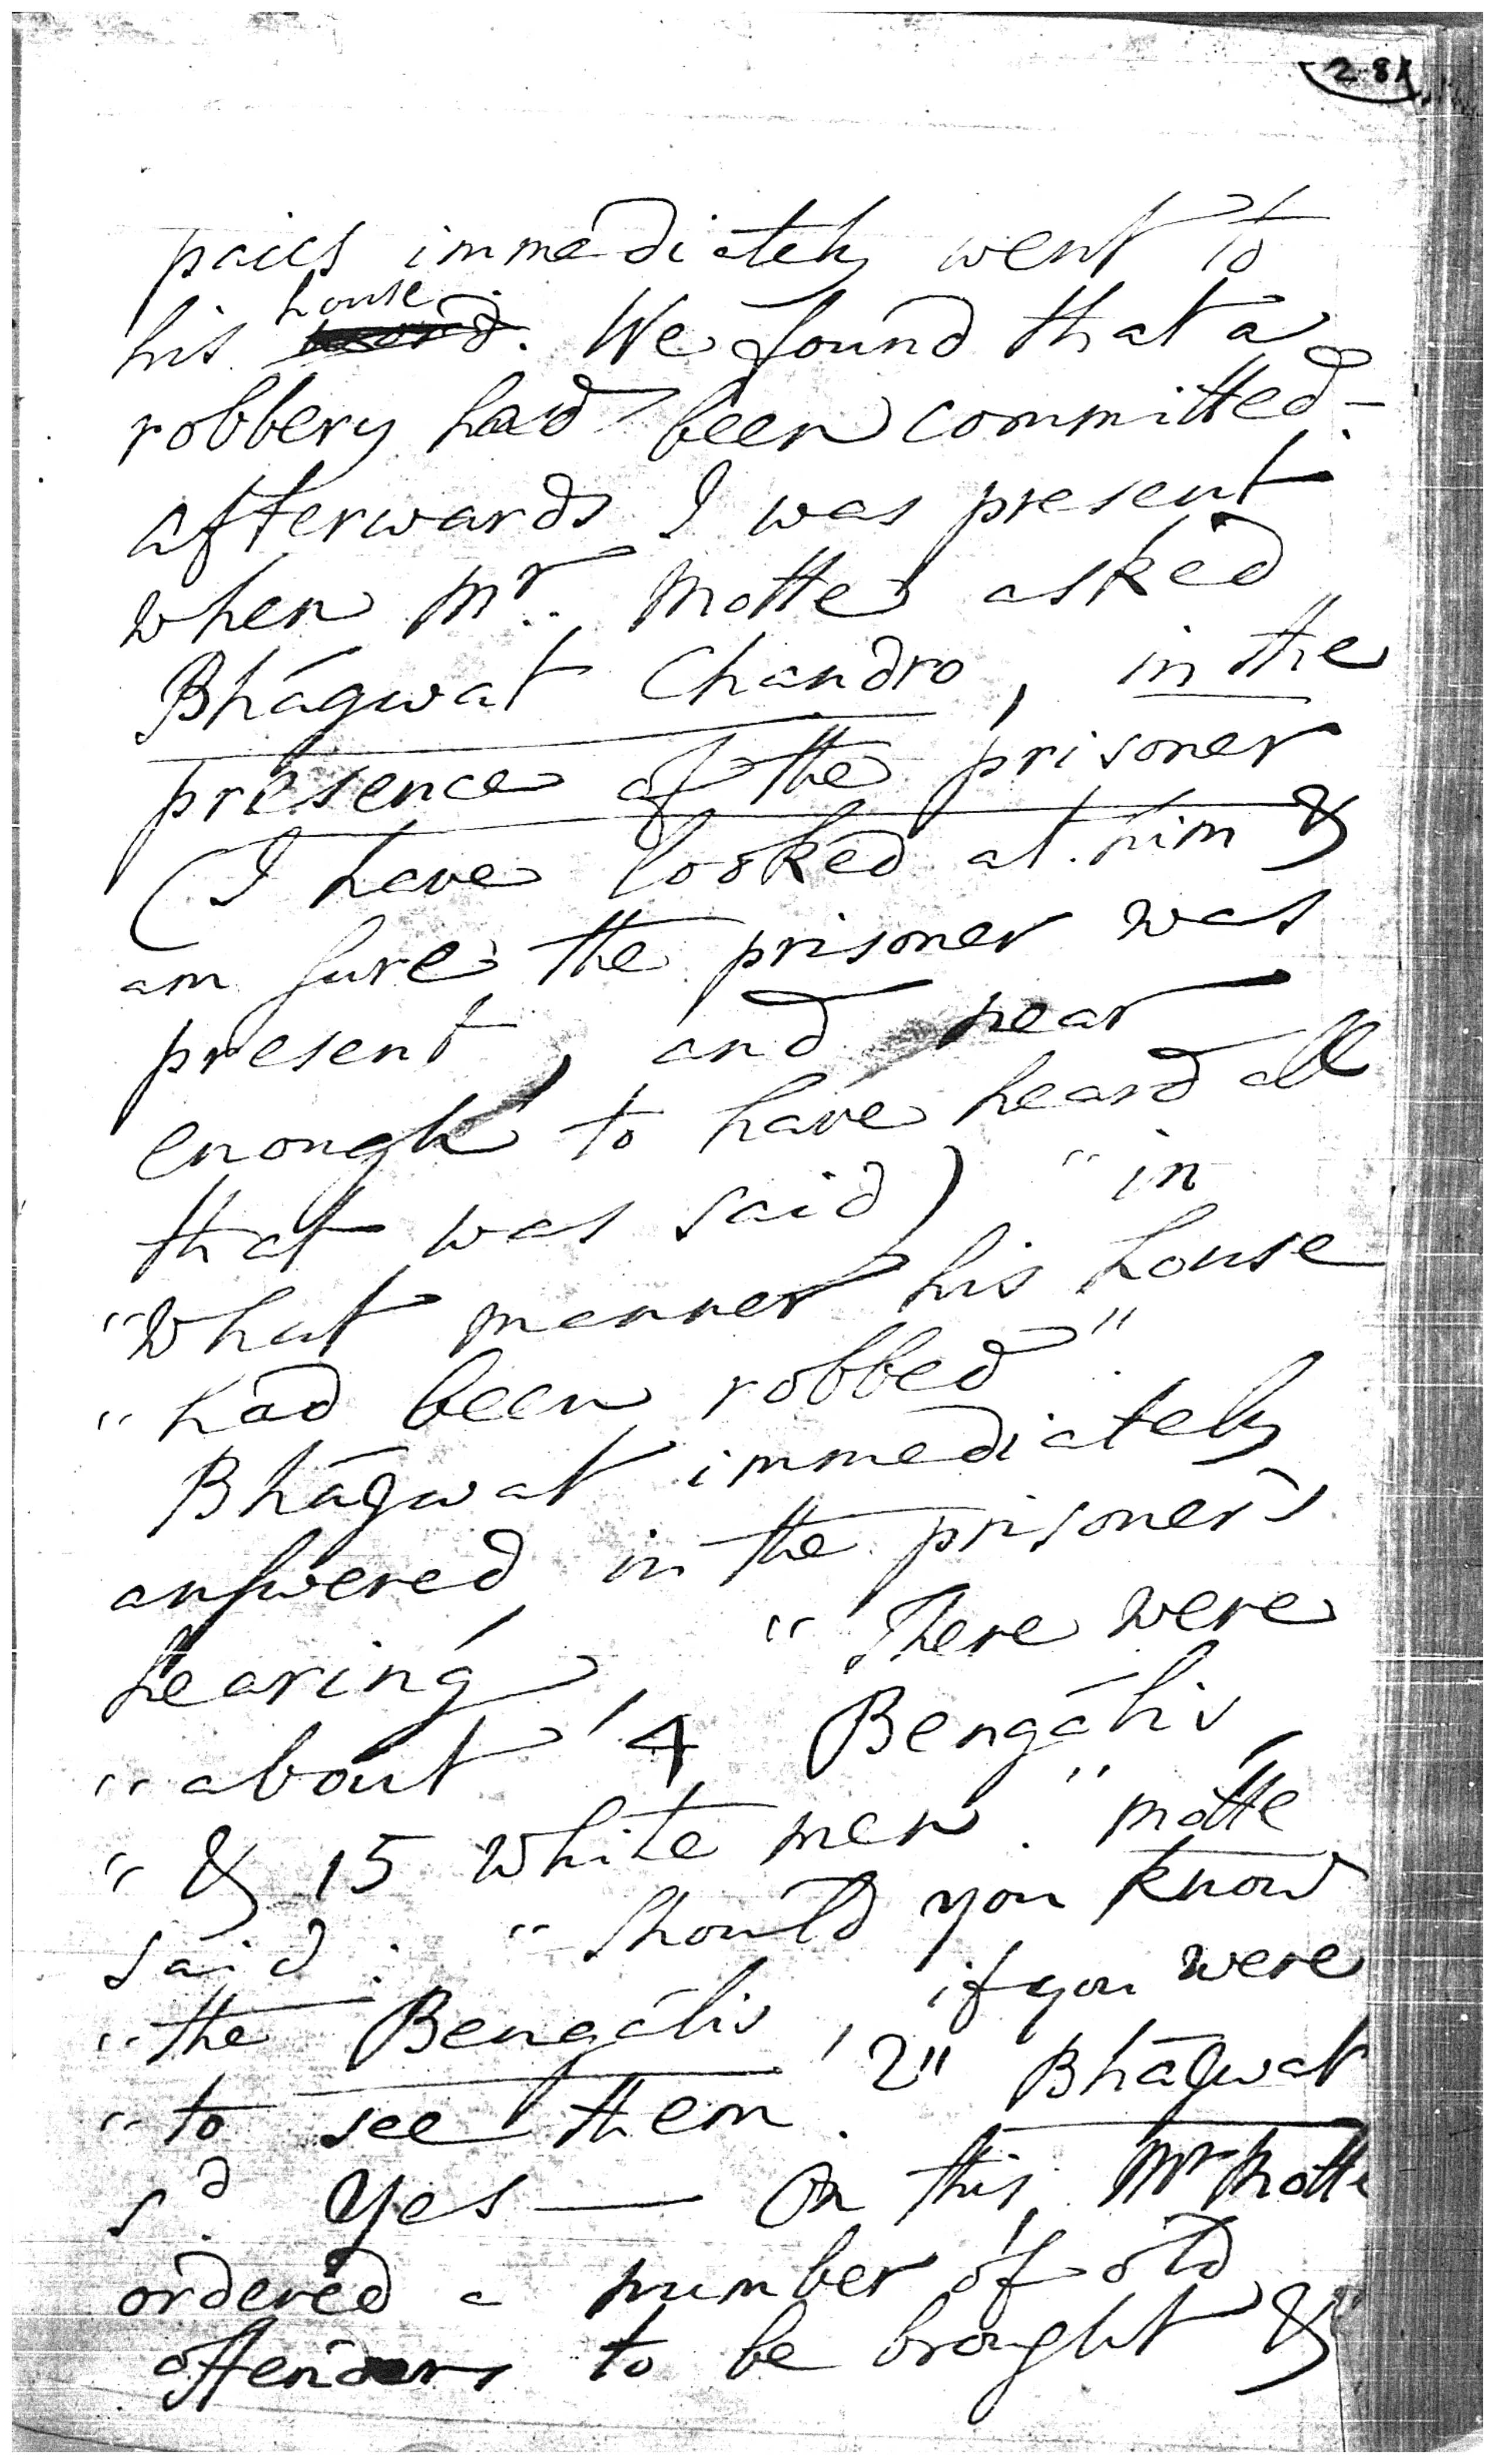 281
paics immediately went to
house
his word. We found that a
robbery had been committed -
afterwards I was present
when Mr. Motte asked
Bhágwat Chandro, in the
presence of the prisoner
(I have looked at him &
am sure the prisoner was
present, and near
enough to have heard all
that was said) "in
"what manner his house
"had been robbed".
Bhágwat immediately
answered, in the prisoner's
hearing, "There were
"about 4 Bengális,
"& 15 white men." Motte
said: "Should you know
"the Bengális, if you were
"to see them?" Bhágwat
sd. Yes — On this, Mr Motte
ordered a number of old
offenders to be brought &